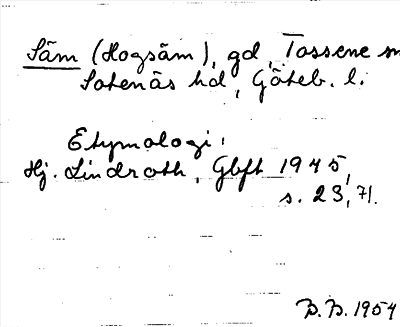 Säm (Hogsäm), gd, Tossene sn
Sotenäs hd, Göteb. l.
Etymologi:
Hj. Lindroth, Gbft 1945,
s. 23, 71.
B.B. 1954